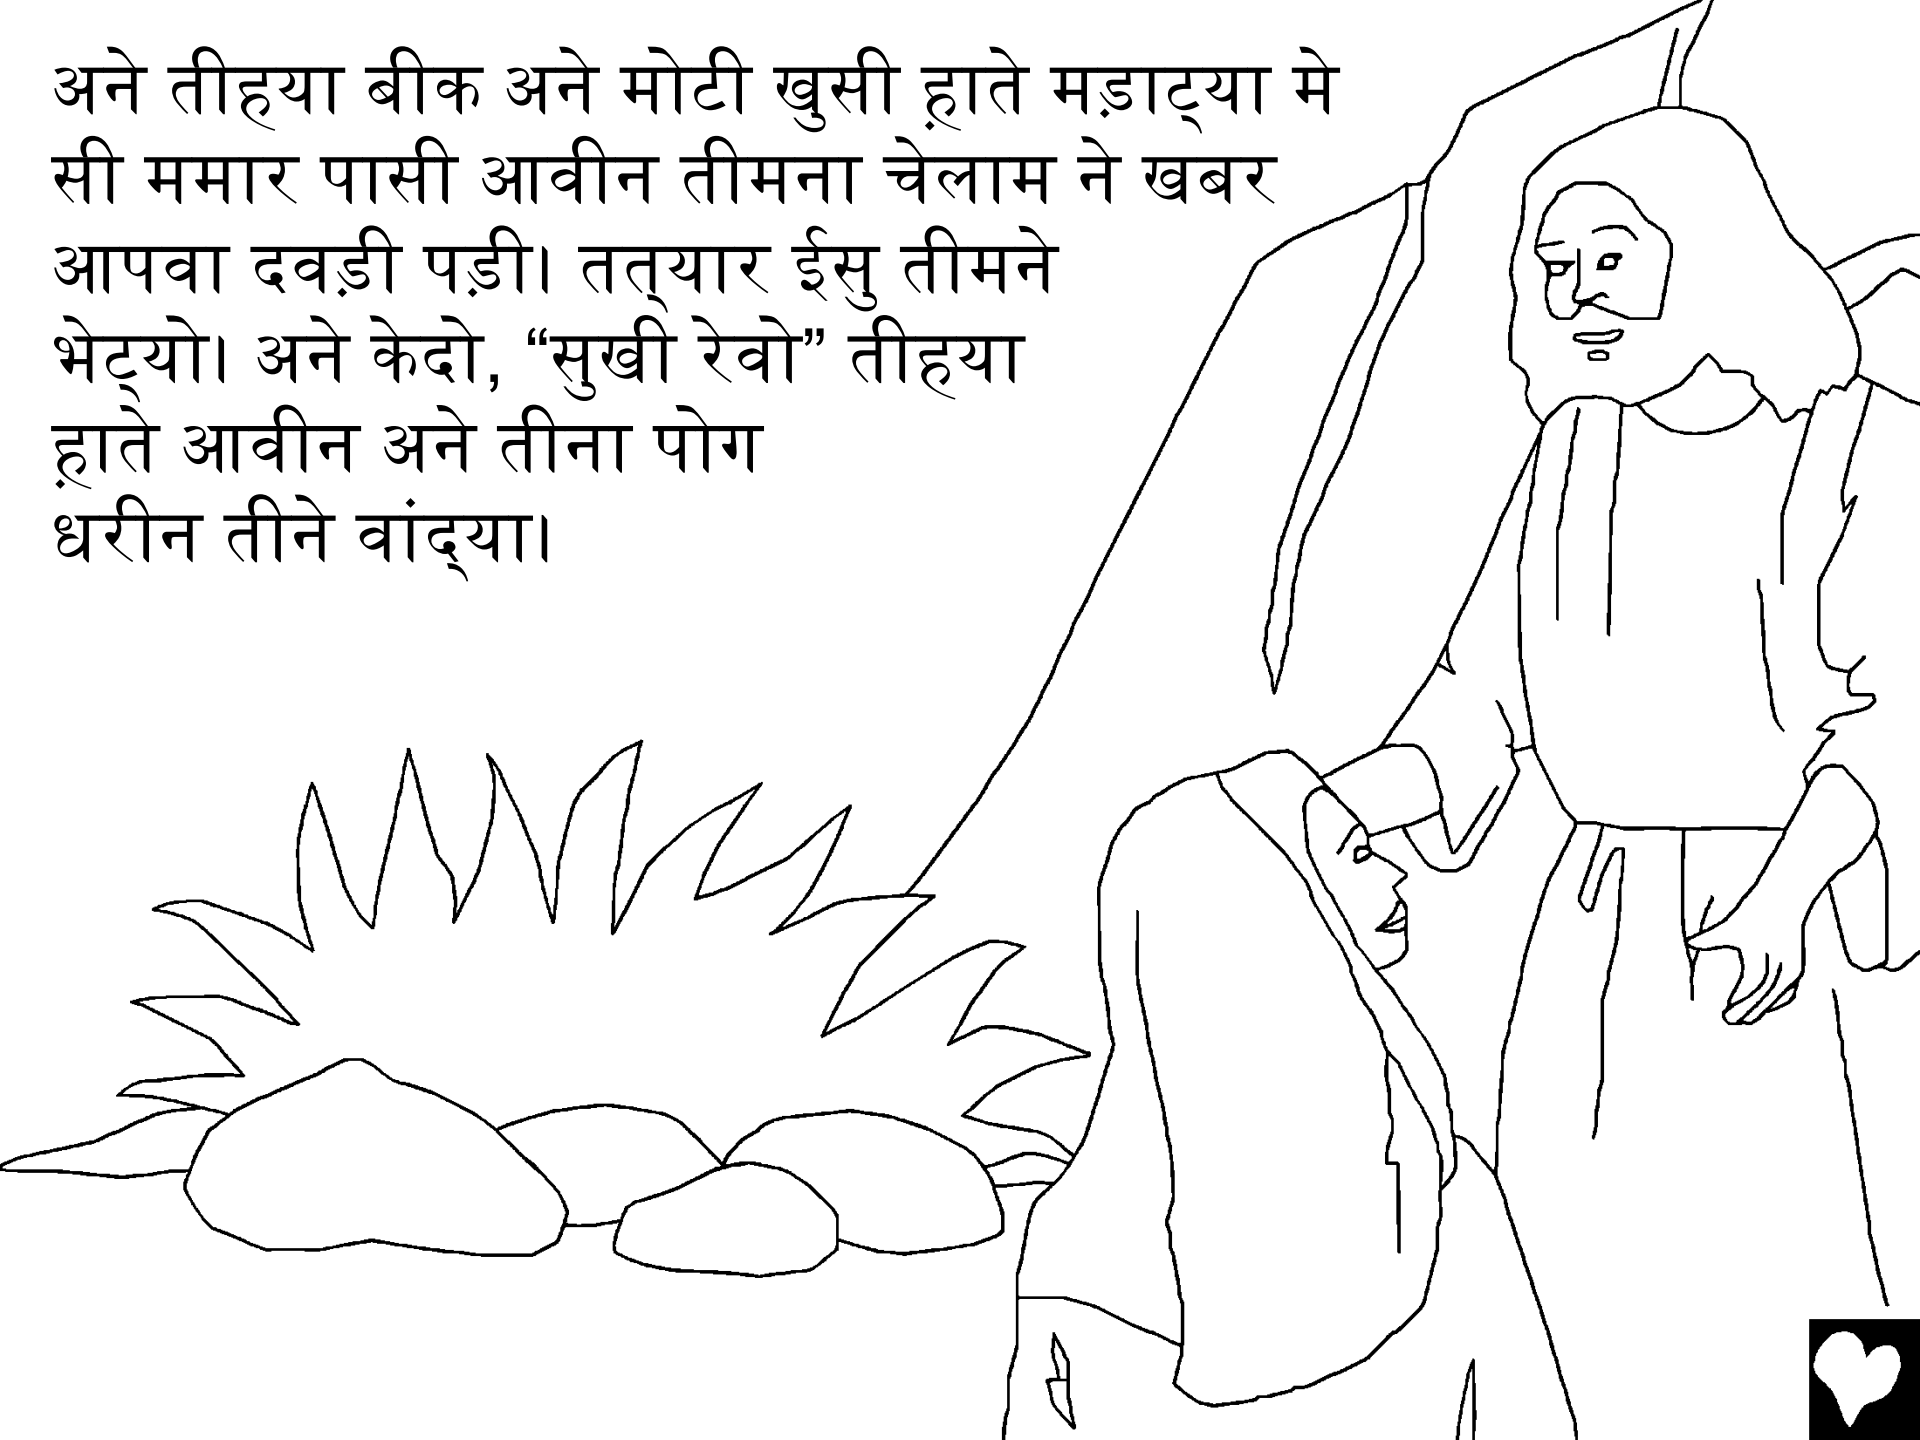 अने तीहया बीक अने मोटी खुसी ह़ाते मड़ाट्‌या मे
सी ममार पासी आवीन तीमना चेलाम ने खबर
आपवा दवड़ी पड़ी। तत्‌यार ईसु तीमने
भेट्‌यो। अने केदो, “सुखी रेवो” तीहया
ह़ाते आवीन अने तीना पोग
धरीन तीने वांद्‌या।